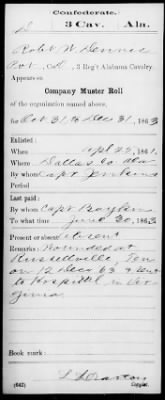 Confederate.
D 3 Cav. Ala.
Robt W Dennis
Pvt, Co. D, 3 Reg't Alabama Cavalry.
Appears on
Company Muster Roll
of the organization named above,
for Oct 31 to Dec 31, 1863
Enlisted:
When Apl 23, 1861.
Where Dallas Co Ala
By whom Capt Jenkins
Period
Last paid:
By whom Capt
To what time June 30, 1863
Present or absent Absent
Remarks: Wounded at
Russellville, Ten
on 12 Dec 63 & sent
to Hospital in
Book mark:
(642) Copyist.